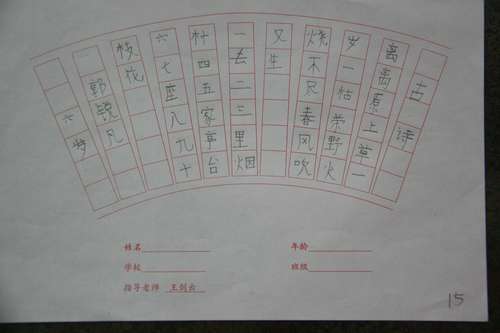 古诗
离离原上草一
岁一枯荣野火
烧不尽春风吹
又生
一去二三里烟
村四五家亭台
六七座八九十
枝花
郭锐凡
六岁
姓名 年龄
学校 班级
指导老师 王剑云
15